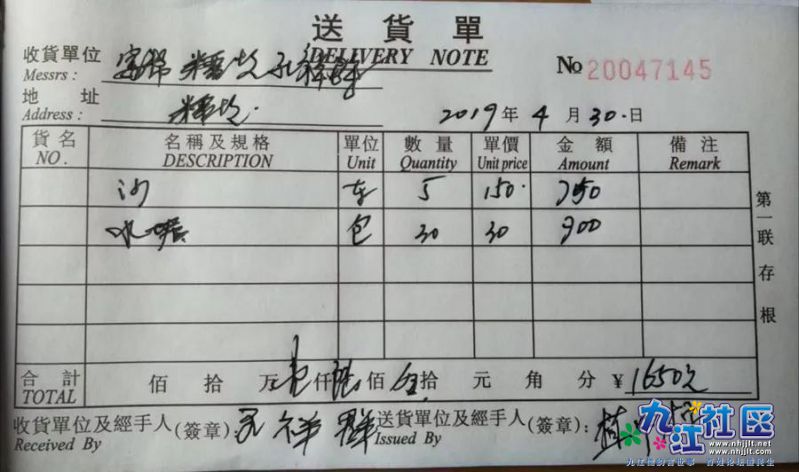 送貨單
DELIVERY NOTE
收貨單位
Messrs :
No 20047145
地 址
Address :
2019 年 4 月 30 日
貨名 名稱及規格 單位 數量 單價 金額 備注
NO. DESCRIPTION Unit Quantity Unit price Amount Remark
沙 车 5 150 750
水 包 30 30 900
第一联 存根
合計 佰 拾 万 仟 佰 拾 元 角 分 ¥ 1650元
TOTAL
收貨單位及經手人(簽章): 孔祥群 送貨單位及經手人(簽章):
Received By Issued By
九江社区
www.nhjjlt.net